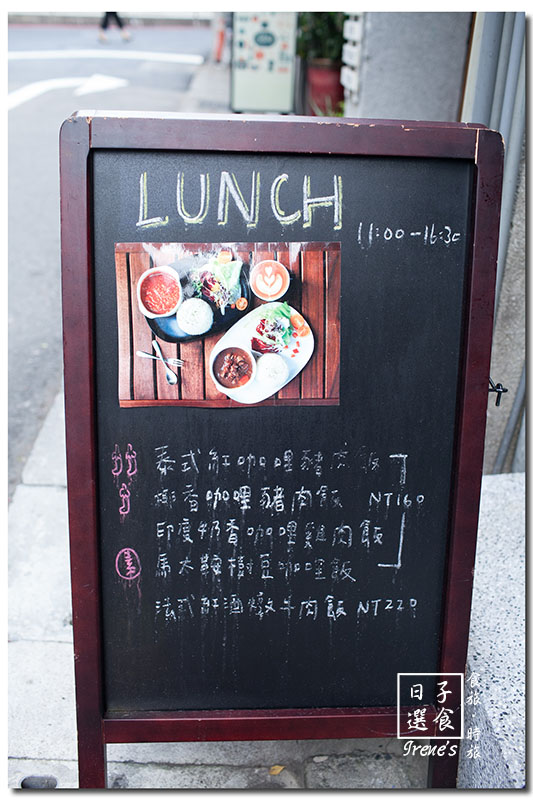 LUNCH
11:00-16:30
泰式紅咖哩豬肉飯
椰香咖哩豬肉飯 NT160
印度奶香咖哩雞肉飯
素 馬大鞍樹豆咖哩飯
法式紅酒燉牛肉飯 NT220
日子
選食
Irene's
食旅
時旅